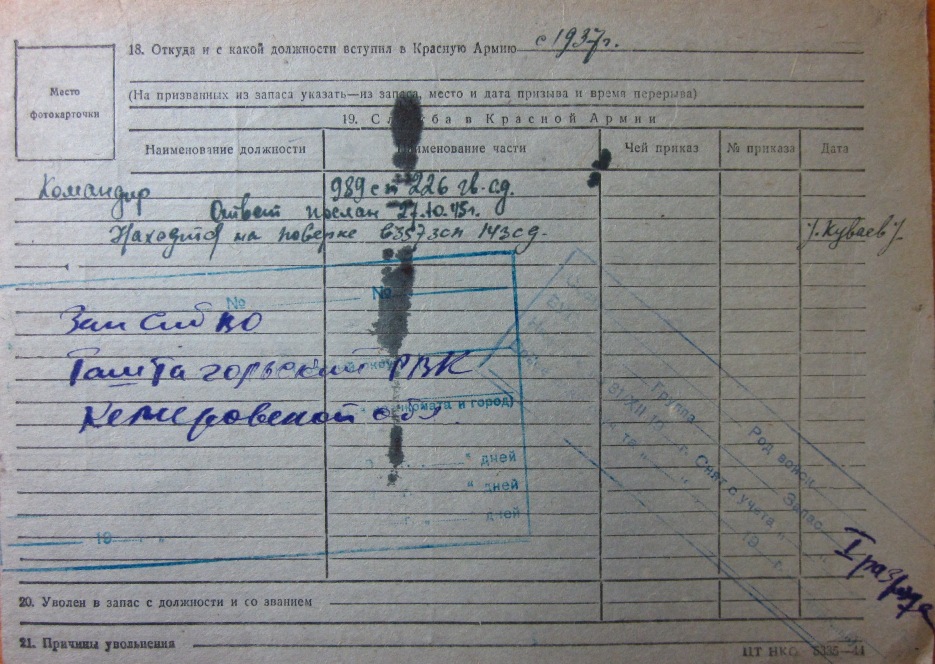 18. Откуда и с какой должности вступил в Красную Армию с 1937г.
Место
фотокарточки
(На призванных из запаса указать—из запаса, место и дата призыва и время перерыва)
19. Служба в Красной Армии
Наименование должности Наименование части Чей приказ № приказа Дата
Командир 989 сп 226 гв. сд.
Ответ послан 27.10.45г.
Находится на поверке в 357зсп 143сд. /.Куваев/.
№ №
Зап Сиб ВО
Таштагольский РВК
Кемеровской обл
и город)
" дней
" дней
дней
19 "
Группа
Род войск
Запас
31/XII 19 г. Снят с учета
19 г.
I разряда
20. Уволен в запас с должности и со званием
21. Причины увольнения
ЦТ НКО 5335—44